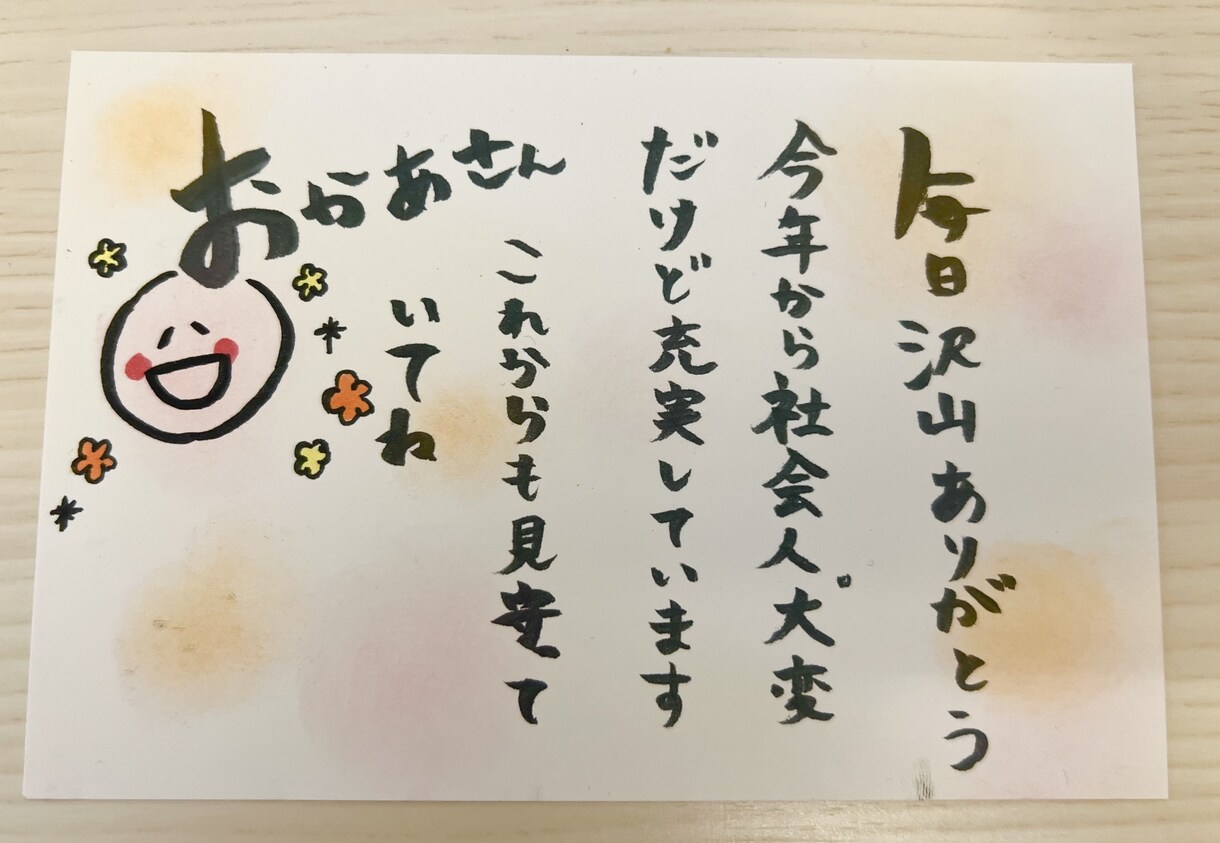 毎日沢山ありがとう
今年から社会人。大変
だけど充実しています
おかあさん
これからも見守て
いてね